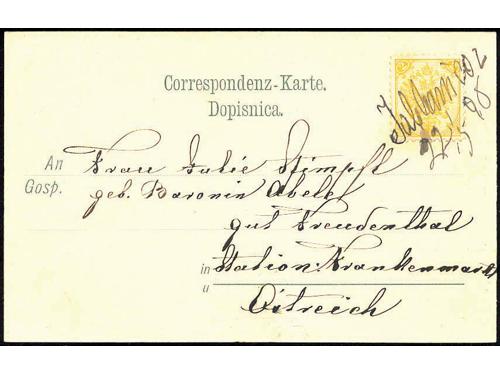 Correspondenz-Karte.
Dopisnica.
An
Gosp.
Frau Julie Stimpfl
geb. Baronin Abele
gut Freudenthal
in
u
Station: Frankenmarkt
Östreich
22/5 98